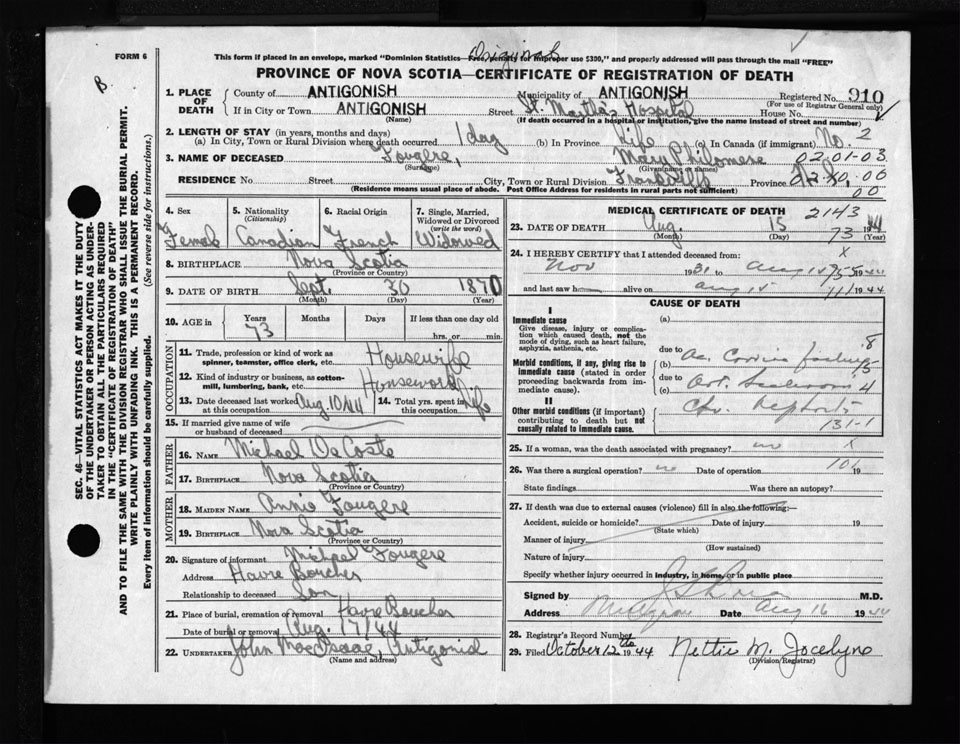 FORM 6
Original
This form if placed in an envelope, marked "Dominion Statistics—Free, penalty for improper use $300," and properly addressed will pass through the mail "FREE"
PROVINCE OF NOVA SCOTIA—CERTIFICATE OF REGISTRATION OF DEATH
B
SEC. 46—VITAL STATISTICS ACT MAKES IT THE DUTY
OF THE UNDERTAKER OR PERSON ACTING AS UNDER-
TAKER TO OBTAIN ALL THE PARTICULARS REQUIRED
IN THE "CERTIFICATE OF REGISTRATION OF DEATH"
AND TO FILE THE SAME WITH THE DIVISION REGISTRAR WHO SHALL ISSUE THE BURIAL PERMIT.
WRITE PLAINLY WITH UNFADING INK. THIS IS A PERMANENT RECORD.
Every item of information should be carefully supplied. (See reverse side for instructions.)
1. PLACE OF DEATH
County of ANTIGONISH Municipality of ANTIGONISH Registered No. 910
(For use of Registrar General only)
If in City or Town ANTIGONISH (Name) Street St. Martha's Hospital House No.
(If death occurred in a hospital or institution, give the name instead of street and number)
2. LENGTH OF STAY (in years, months and days)
(a) In City, Town or Rural Division where death occurred 1 day (b) In Province Life (c) In Canada (if immigrant) No. 2
3. NAME OF DECEASED Fougere, Mary Philomene 02-01-03
(Surname) (Given name or names)
RESIDENCE No. Street City, Town or Rural Division Frankville Province N.S. 00
(Residence means usual place of abode. Post Office Address for residents in rural parts not sufficient) 00
4. Sex Female
5. Nationality (Citizenship) Canadian
6. Racial Origin French
7. Single, Married, Widowed or Divorced (write the word) Widowed
8. BIRTHPLACE Nova Scotia
(Province or Country)
9. DATE OF BIRTH Sept. 30 1870
(Month) (Day) (Year)
10. AGE in Years 73 Months Days If less than one day
hrs. or min.
OCCUPATION
11. Trade, profession or kind of work as spinner, teamster, office clerk, etc. Housewife
12. Kind of industry or business, as cotton-mill, lumbering, bank, etc. Housework
13. Date deceased last worked at this occupation Aug 10/44 14. Total yrs. spent in this occupation Life
15. If married give name of wife or husband of deceased
FATHER
16. Name Michael DeCoste
17. Birthplace Nova Scotia
(Province or Country)
MOTHER
18. MAIDEN NAME Annie Fougere
19. BIRTHPLACE Nova Scotia
(Province or Country)
20. Signature of informant Michael Fougere
Address Havre Boucher
Relationship to deceased Son
21. Place of burial, cremation or removal Havre Boucher
Date of burial or removal Aug. 17/44
22. UNDERTAKER John MacIsaac, Antigonish
(Name and address)
MEDICAL CERTIFICATE OF DEATH 2143
23. DATE OF DEATH Aug. 15 73 1944
(Month) (Day) (Year)
24. I HEREBY CERTIFY that I attended deceased from: X
Nov 1931 to Aug 15 1944
and last saw h alive on Aug 15 1944
CAUSE OF DEATH
I
Immediate cause
Give disease, injury or complication which caused death, not the mode of dying, such as heart failure, asphyxia, asthenia, etc.
(a)
8
due to
Morbid conditions, if any, giving rise to immediate cause (stated in order proceeding backwards from immediate cause).
(b) 15
due to
(c) 4
II
Other morbid conditions (if important) contributing to death but not causally related to immediate cause.
131-1
25. If a woman, was the death associated with pregnancy? no X
26. Was there a surgical operation? no Date of operation 101 19
State findings Was there an autopsy?
27. If death was due to external causes (violence) fill in also the following:—
Accident, suicide or homicide? Date of injury 19
(State which)
Manner of injury
(How sustained)
Nature of injury
Specify whether injury occurred in industry, in home, or in public place
Signed by M.D.
Address Date Aug 16 1944
28. Registrar's Record Number
29. Filed October 12th 1944 Nettie M. Jocelyne
(Division Registrar)